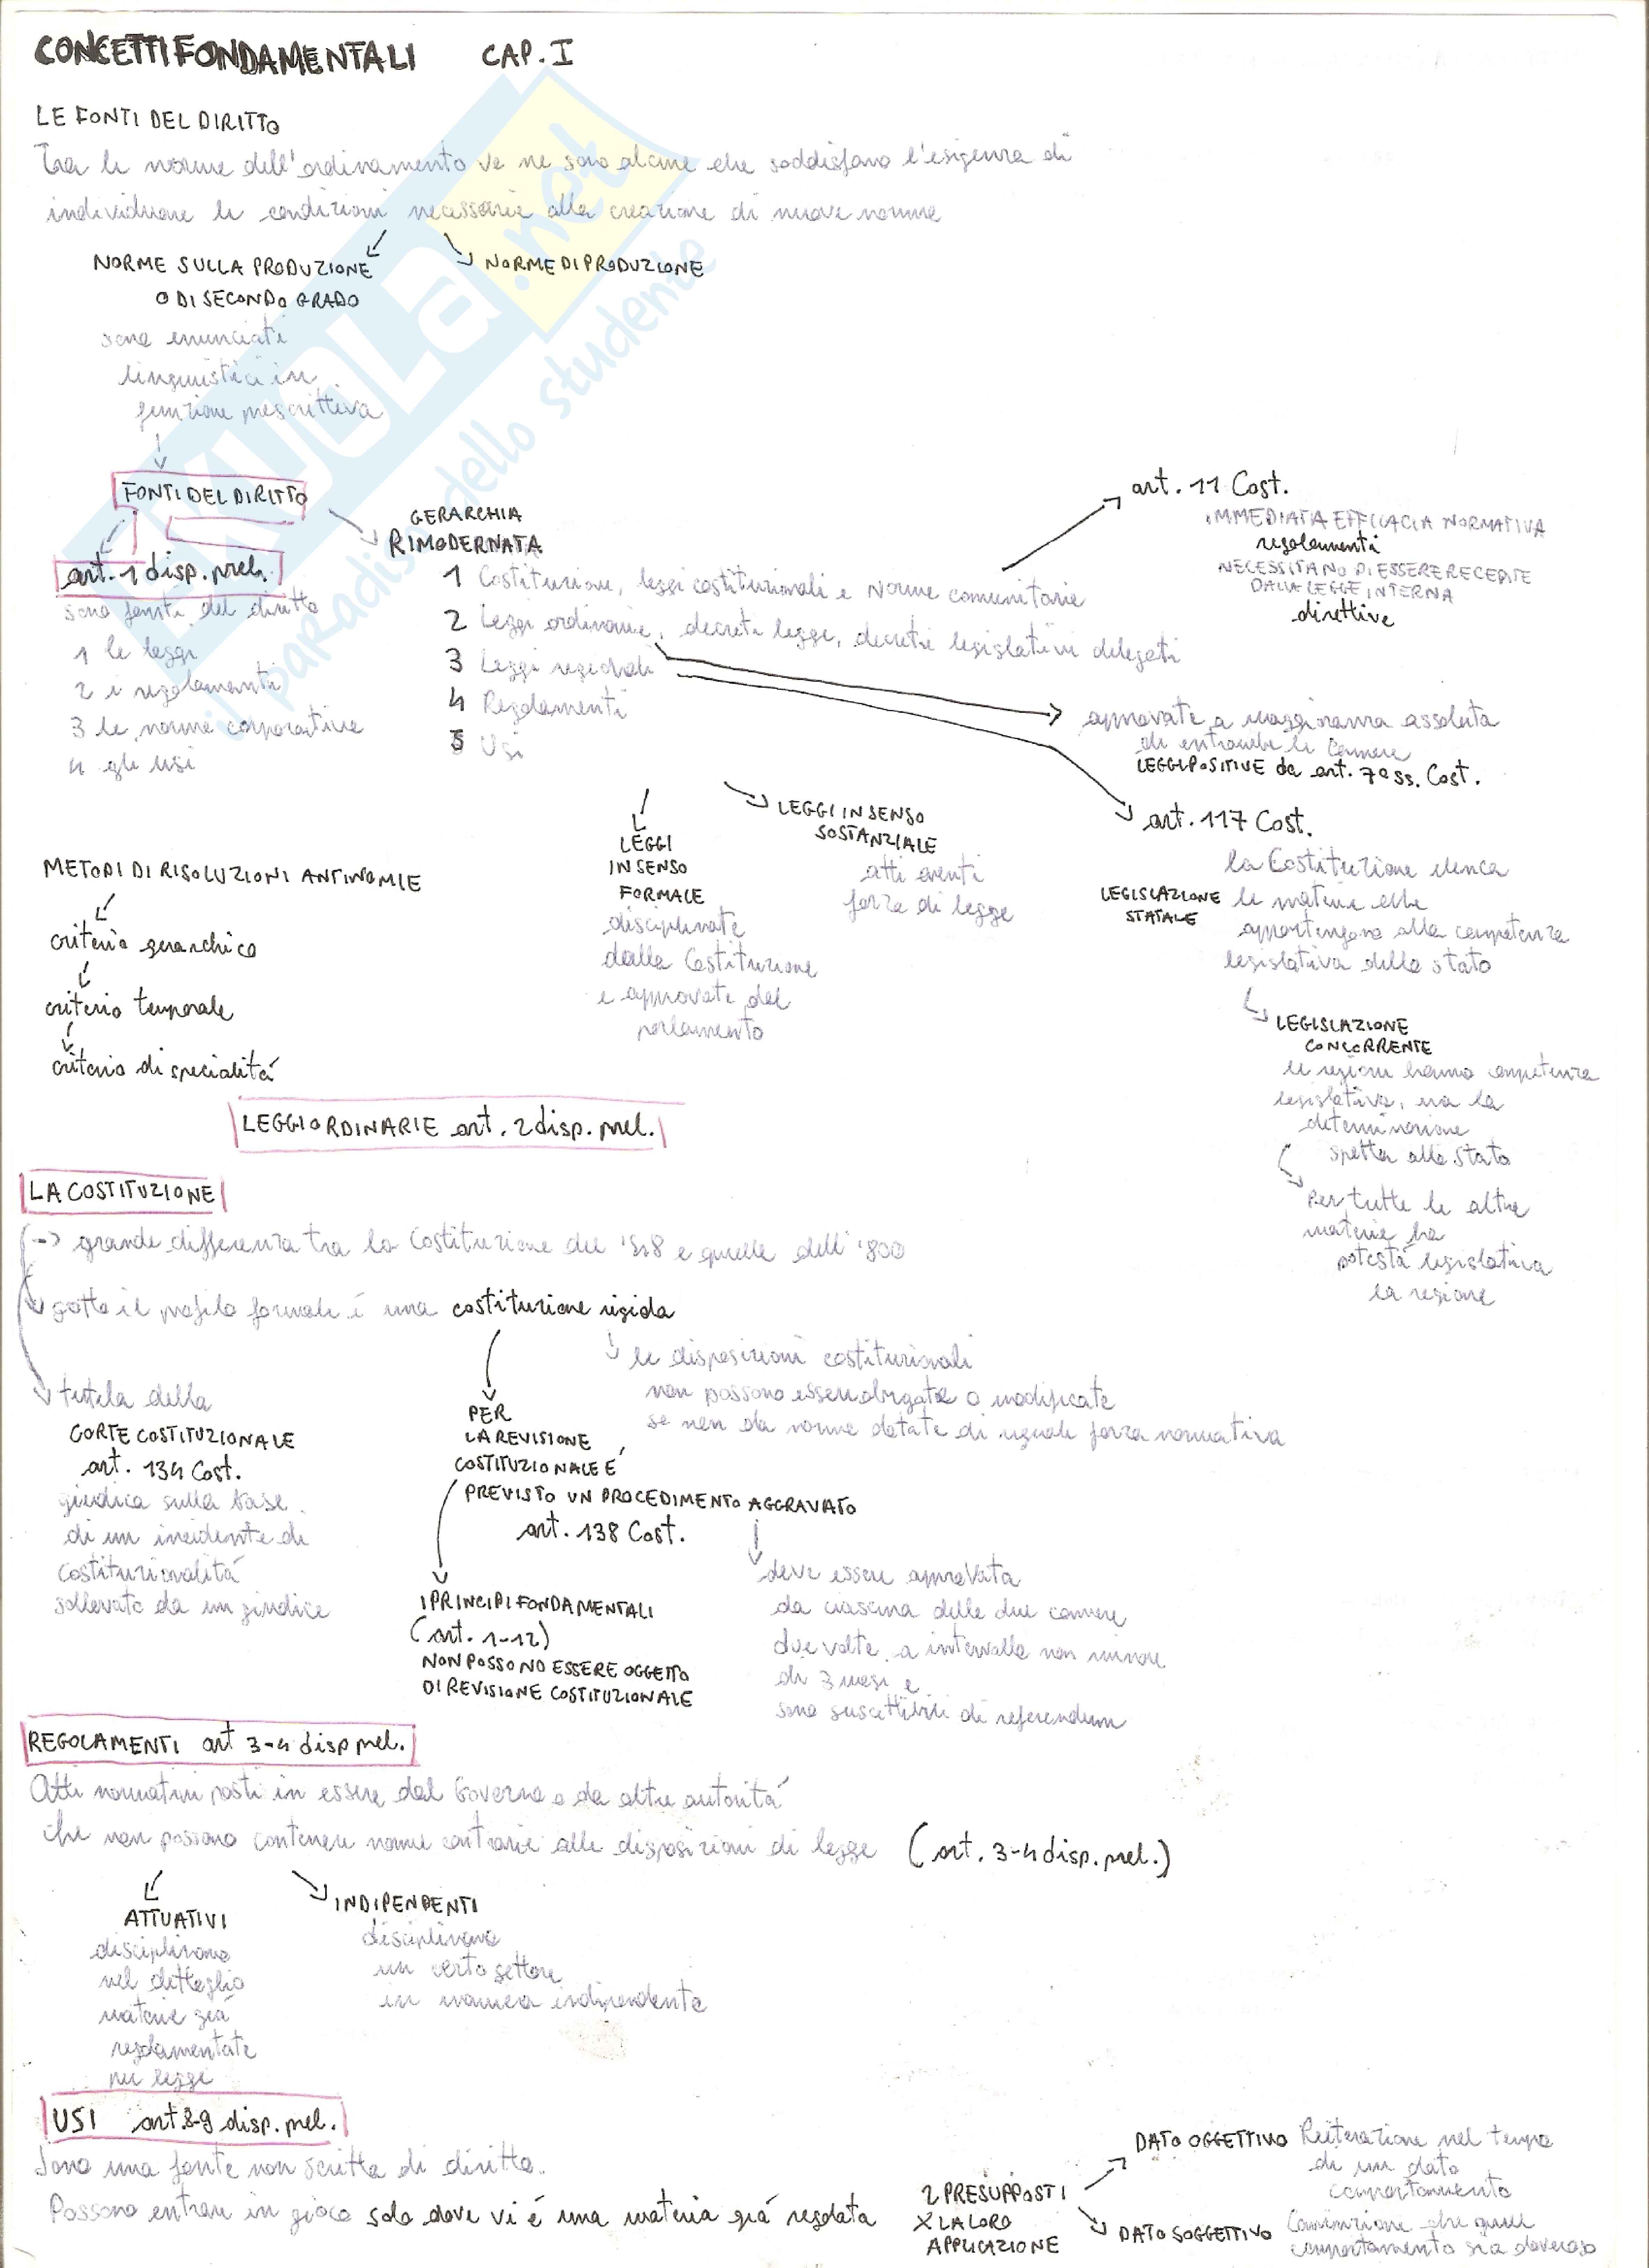 CONCETTI FONDAMENTALI CAP. I
LE FONTI DEL DIRITTO
Tra le norme dell'ordinamento ve ne sono alcune che soddisfano l'esigenza di
individuare le condizioni necessarie alla creazione di nuove norme
NORME SULLA PRODUZIONE
O DI SECONDO GRADO
sono enunciati
linguistici in
funzione prescrittiva
NORME DI PRODUZIONE
FONTI DEL DIRITTO
art. 1 disp. prel.
sono fonti del diritto
1 le leggi
2 i regolamenti
3 le norme corporative
4 gli usi
GERARCHIA
RIMODERNATA
1 Costituzione, leggi costituzionali e Norme comunitarie
2 Leggi ordinarie, decreti legge, decreti legislativi delegati
3 Leggi regionali
4 Regolamenti
5 Usi
art. 11 Cost.
IMMEDIATA EFFICACIA NORMATIVA
regolamenti
NECESSITANO DI ESSERE RECEPITE
DALLA LEGGE INTERNA
direttive
approvate a maggioranza assoluta
di entrambe le Camere
LEGGI POSITIVE da art. 70 ss. Cost.
art. 117 Cost.
LEGISLAZIONE
STATALE
la Costituzione elenca
le materie che
appartengono alla competenza
legislativa dello stato
LEGISLAZIONE
CONCORRENTE
le regioni hanno competenza
legislativa, ma la
determinazione
spetta allo stato
Per tutte le altre
materie ha
potestá legislativa
la regione
LEGGI
IN SENSO
FORMALE
disciplinate
dalla Costituzione
e approvate dal
parlamento
LEGGI IN SENSO
SOSTANZIALE
atti aventi
forza di legge
METODI DI RISOLUZIONI ANTINOMIE
criterio gerarchico
criterio temporale
criterio di specialitá
LEGGI ORDINARIE art. 2 disp. prel.
LA COSTITUZIONE
grande differenza tra la Costituzione del '48 e quelle dell'800
sotto il profilo formale è una costituzione rigida
le disposizioni costituzionali
non possono essere abrogate o modificate
se non da norme dotate di uguale forza normativa
tutela della
CORTE COSTITUZIONALE
art. 134 Cost.
giudica sulla base
di un incidente di
costituzionalitá
sollevato da un giudice
PER
LA REVISIONE
COSTITUZIONALE É
PREVISTO UN PROCEDIMENTO AGGRAVATO
art. 138 Cost.
deve essere approvata
da ciascuna delle due camere
due volte a intervallo non minore
di 3 mesi e
sono suscettibili di referendum
I PRINCIPI FONDAMENTALI
(art. 1-12)
NON POSSONO ESSERE OGGETTO
DI REVISIONE COSTITUZIONALE
REGOLAMENTI art 3-4 disp prel.
Atti normativi posti in essere dal Governo o da altre autoritá
che non possono contenere norme contrarie alle disposizioni di legge (art. 3-4 disp. prel.)
ATTUATIVI
disciplinano
nel dettaglio
materie giá
regolamentate
per legge
INDIPENDENTI
disciplinano
un certo settore
in maniera indipendente
USI art. 8-9 disp. prel.
Sono una fonte non scritta di diritto.
Possono entrare in gioco solo dove vi é una materia giá regolata
2 PRESUPPOSTI
X LA LORO
APPLICAZIONE
DATO OGGETTIVO Reiterazione nel tempo
di un dato
comportamento
DATO SOGGETTIVO Convinzione che quel
comportamento sia doveroso
SKUOLA.net
il paradiso dello studente